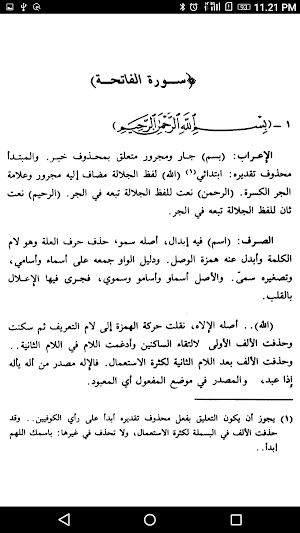 11.21 PM
﴿سورة الفاتحة﴾
١ – (بِسْمِ اللَّهِ الرَّحْمَٰنِ الرَّحِيمِ)
الإعراب: (بسم) جار ومجرور متعلق بمحذوف خبر. والمبتدأ
محذوف تقديره: ابتدائي(١) (الله) لفظ الجلالة مضاف إليه مجرور وعلامة
الجر الكسرة. (الرحمن) نعت للفظ الجلالة تبعه في الجر. (الرحيم) نعت
ثان للفظ الجلالة تبعه في الجر.
الصرف: (اسم) فيه إبدال، أصله سمو، حذف حرف العلة وهو لام
الكلمة وأبدل عنه همزة الوصل. ودليل الواو جمعه على أسماء وأسامي،
وتصغيره سميّ. والأصل أسماو وأسامو وسموي، فجرى فيها الإعلال
بالقلب.
(الله).. أصله الإلاه، نقلت حركة الهمزة إلى لام التعريف ثم سكنت
وحذفت الألف الأولى لالتقاء الساكنين وأدغمت اللام في اللام الثانية..
وحذفت الألف بعد اللام الثانية لكثرة الاستعمال. فالإله مصدر من أله يأله
إذا عبد، والمصدر في موضع المفعول أي المعبود.
(١) يجوز أن يكون التعليق بفعل محذوف تقديره أبدأ على رأي الكوفيين.. وقد
حذفت الألف في البسملة لكثرة الاستعمال، ولا تحذف في غيرها: باسمك اللهم
أبدأ..